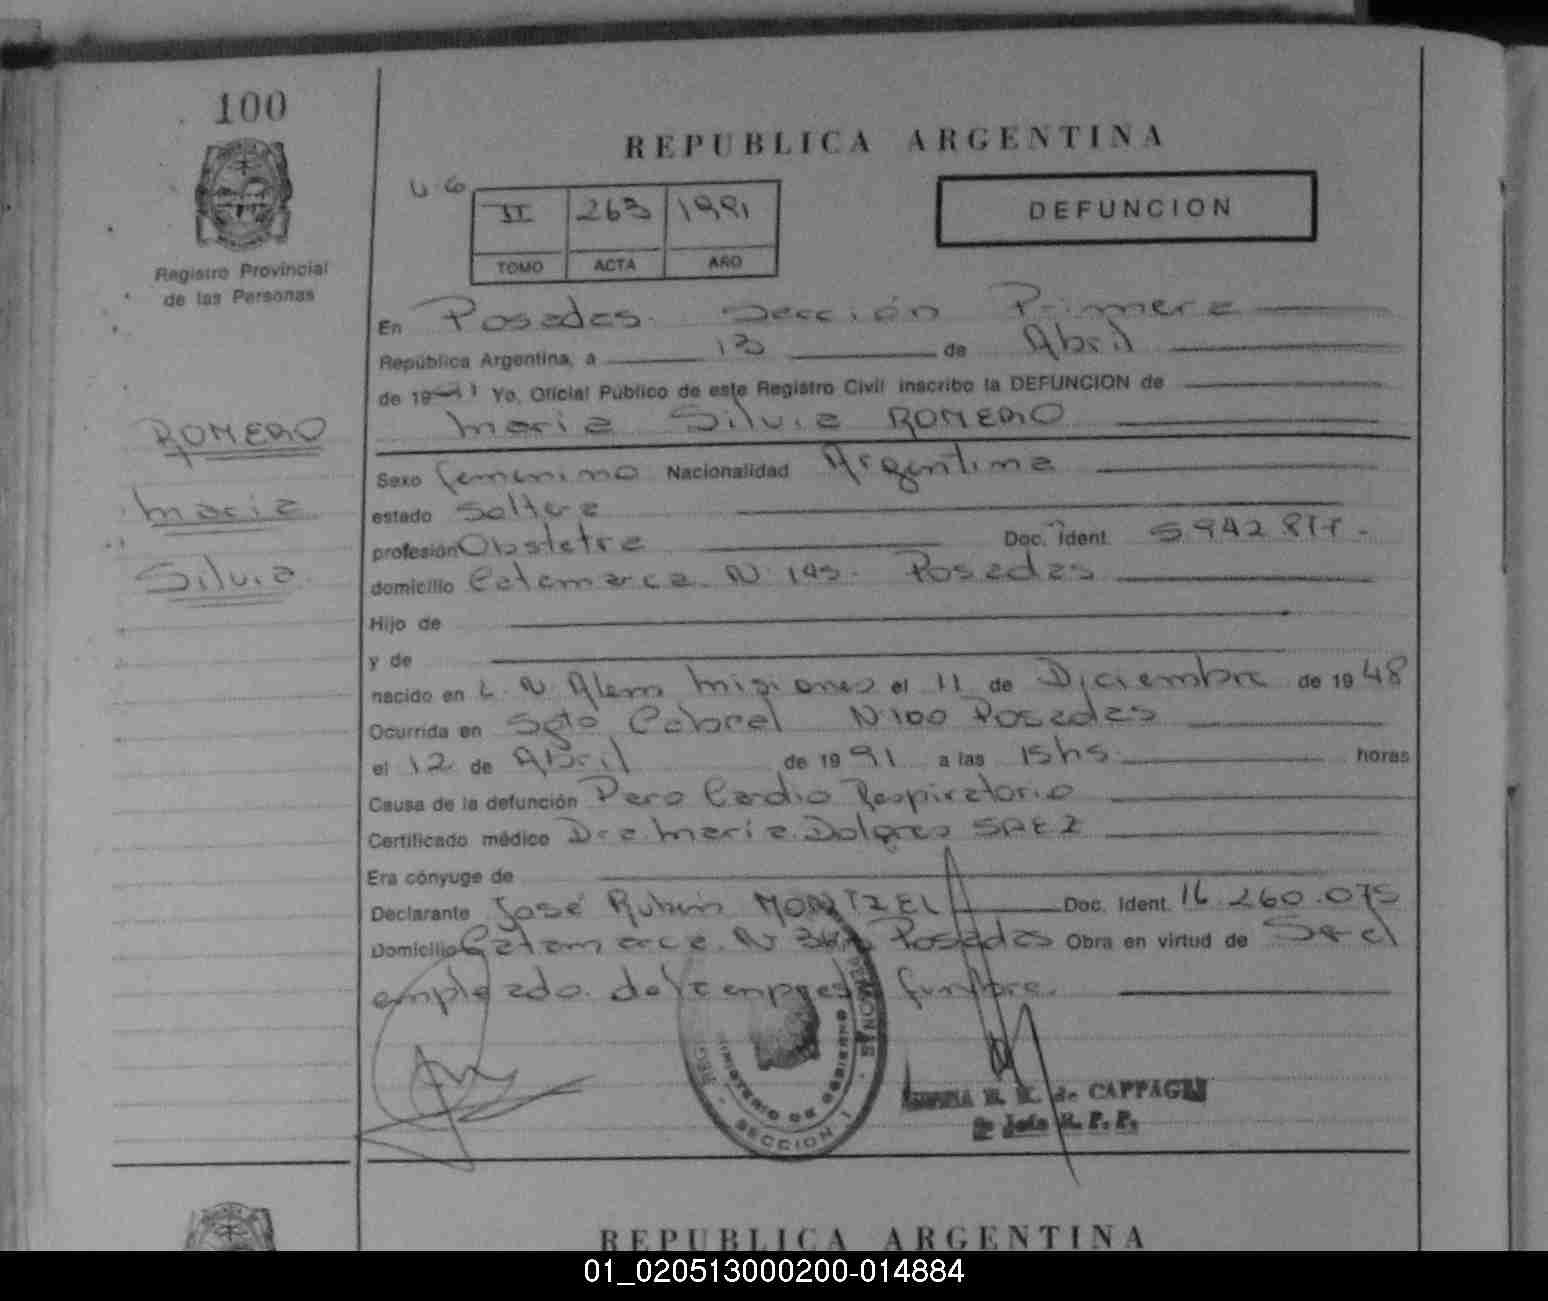 100
REPUBLICA ARGENTINA
Registro Provincial
de las Personas
II 263 1991
TOMO ACTA AÑO
DEFUNCION
En Posadas. Sección Primera
República Argentina, a 13 de Abril
de 1991 Yo, Oficial Público de este Registro Civil inscribo la DEFUNCION de
Maria Silvia ROMERO
ROMERO
Maria
Silvia
Sexo femenino Nacionalidad Argentina
estado Soltera
profesión Obstetra Doc. Ident.
domicilio Catamarca N. 145. Posadas
Hijo de
y de
nacido en L. N. Alem Misiones el 11 de Diciembre de 1948
Ocurrida en Sgto Cabral N 100 Posadas
el 12 de Abril de 1991 a las 15hs. horas
Causa de la defunción Paro Cardio Respiratorio
Certificado médico Dra Maria Dolores SAEZ
Era cónyuge de
Declarante José Rubén MONTZEL Doc. Ident. 16.260.075
Domicilio Catamarca N Posadas Obra en virtud de Ser el
empleado de la empresa funebre.
SECCION 1
de CAPPAGLI
REPUBLICA ARGENTINA
01_020513000200-014884